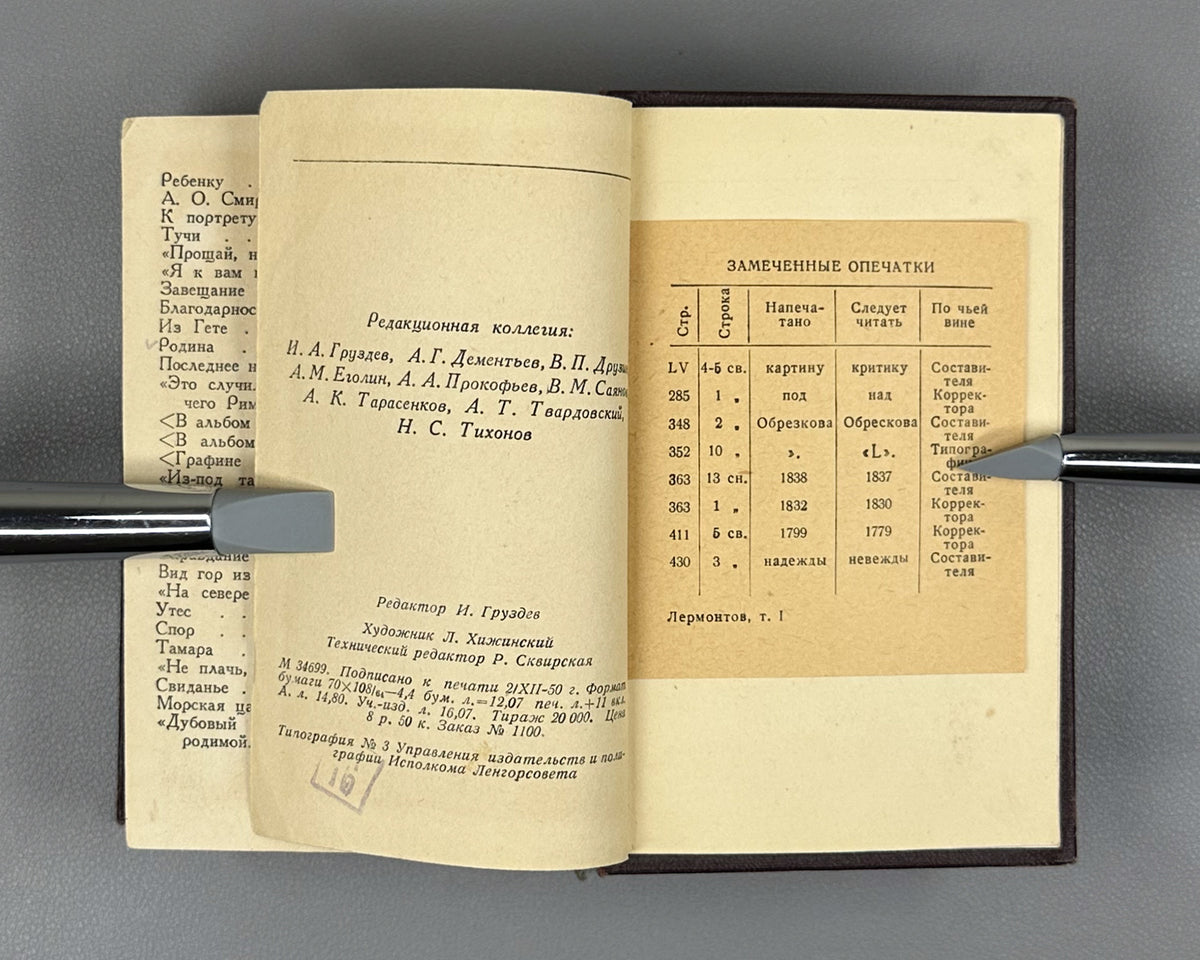 Ребенку .
А. О.
К портрету
Тучи . .
«Прощай,
«Я к вам
Завещание
Из Гете .
Родина .
Последнее
«Это
чего
<В альбом
<В альбом
<Графине
«Из-под
Вид гор из
«На севере
Утес . .
Спор . .
Тамара .
«Не плачь,
Свиданье .
Морская
«Дубовый
родимой.
Редакционная коллегия:
И. А. Груздев, А. Г. Дементьев, В. П.
А. М. Еголин, А. А. Прокофьев, В. М.
А. К. Тарасенков, А. Т. Твардовский,
Н. С. Тихонов
Редактор И. Груздев
Художник Л. Хижинский
Технический редактор Р. Сквирская
М 34699. Подписано к печати 2/XII-50 г. Формат
бумаги 70×108/64—4,4 бум. л.=12,07 печ. л.+11 вкл.
А. л. 14,80. Уч.-изд. л. 16,07. Тираж 20 000. Цена
8 р. 50 к. Заказ № 1100.
Типография № 3 Управления издательств и поли-
графии Исполкома Ленгорсовета
ЗАМЕЧЕННЫЕ ОПЕЧАТКИ
Стр. Строка Напеча- Следует По чьей
тано читать вине
LV 4-5 св. картину критику Состави-
теля
285 1 „ под над Коррек-
тора
348 2 „ Обрезкова Обрескова Состави-
теля
352 10 „ ». «L». Типогра-
363 13 сн. 1838 1837 Состави-
теля
363 1 „ 1832 1830 Коррек-
тора
411 5 св. 1799 1779 Коррек-
тора
430 3 „ надежды невежды Состави-
теля
Лермонтов, т. I